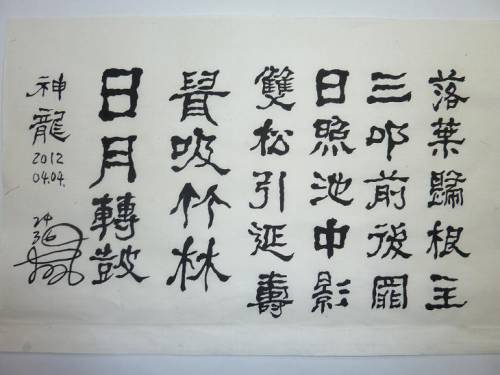 落葉歸根主
三叩前後
日照池中影
雙松引延壽
吸竹林
日月轉鼓
神龍
2012
04.04.